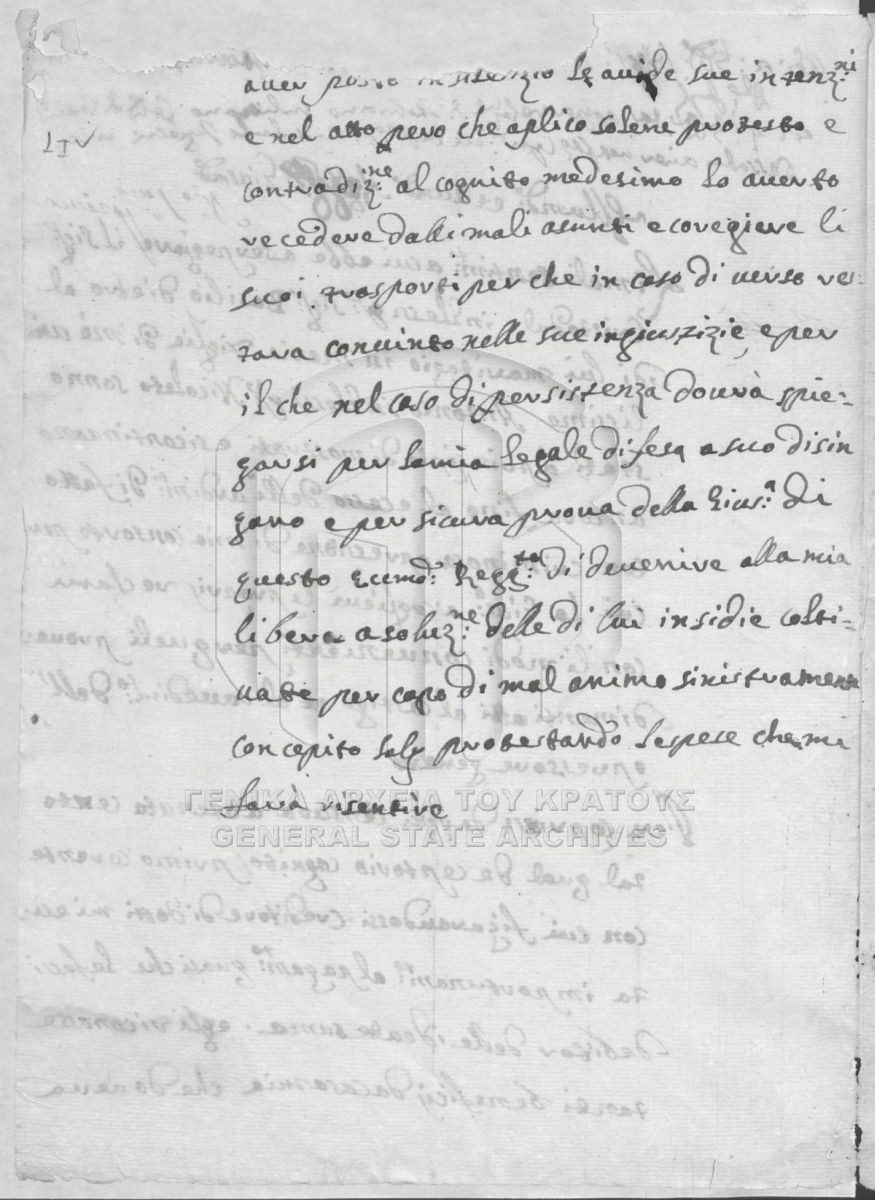 aver posto in silenzio le auide sue intenz:ni
e nel atto pero che aplico solene protesto e
contradiz:ne al cognito medesimo lo auerto
recedere dalli mali asunti e coregiere li
suoi trasporti per che in caso di uerso res
tara conuinto nelle sue ingiustizie, e per
il che nel caso di persistenza dourà spie-
garsi per la mia legale difesa a suo disin
gano e per sicura proua della Gius:a di
questo Eccmo: Regg:to di deuenire alla mia
libera asoluz:ne delle di lui insidie colti-
uate per capo di mal animo sinistramente
concepito protestando le spese che mi
farà risentire
LIV
ΓΕΝΙΚΑ ΑΡΧΕΙΑ ΤΟΥ ΚΡΑΤΟΥΣ
GENERAL STATE ARCHIVES